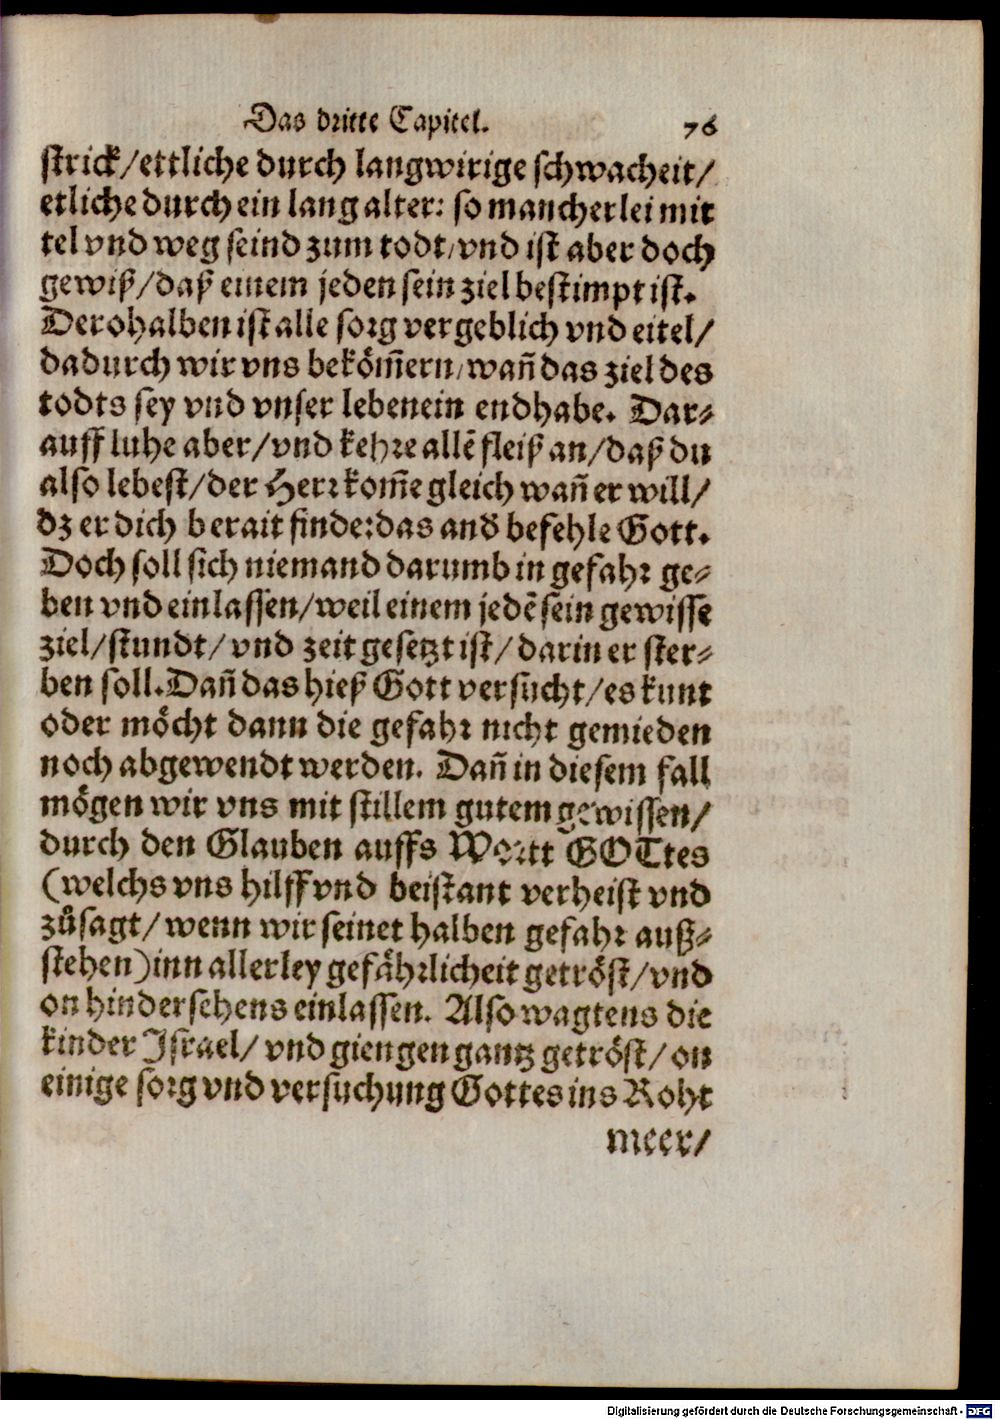 Das dritte Capitel. 76
strick/ettliche durch langwirige schwacheit/
etliche durch ein lang alter: so mancherlei mit
tel vnd weg seind zum todt/vnd ist aber doch
gewiß/daß einem jeden sein ziel bestimpt ist.
Derohalben ist alle sorg vergeblich vnd eitel/
dadurch wir vns beköm̃ern/wañ das ziel des
todts sey vnd vnser leben ein end habe. Dar-
auff luhe aber/vnd kehre allẽ fleiß an/daß du
also lebest/der Herr kom̃e gleich wañ er will/
dz er dich berait finde: das and̕ befehle Gott.
Doch soll sich niemand darumb in gefahr ge-
ben vnd einlassen/weil einem jedẽ sein gewisse
ziel/stundt/ vnd zeit gesetzt ist/ darin er ster-
ben soll. Dañ das hieß Gott versucht/es kunt
oder möcht dann die gefahr nicht gemieden
noch abgewendt werden. Dañ in diesem fall
mögen wir vns mit stillem gutem gewissen/
durch den Glauben auffs Wortt GOTtes
(welchs vns hilff vnd beistant verheist vnd
zůsagt/ wenn wir seinet halben gefahr auß-
stehen) inn allerley gefährlicheit getröst/vnd
on hindersehens einlassen. Also wagtens die
kinder Israel/ vnd giengen gantz getröst/ on
einige sorg vnd versuchung Gottes ins Roht
meer/
Digitalisierung gefördert durch die Deutsche Forschungsgemeinschaft - DFG